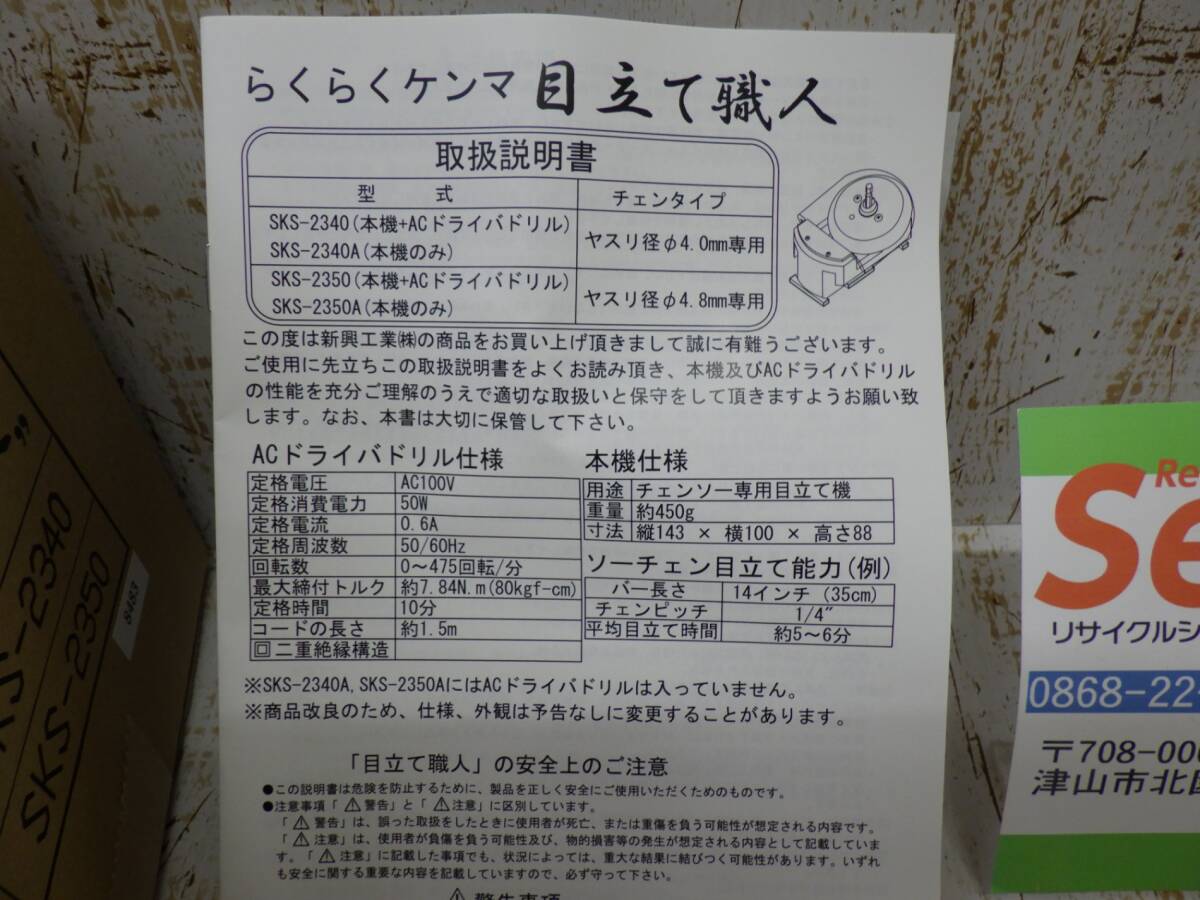 らくらくケンマ 目立て職人
取扱説明書
型 式 チェンタイプ
SKS-2340(本機+ACドライバドリル)
SKS-2340A(本機のみ)
ヤスリ径φ4.0mm専用
SKS-2350(本機+ACドライバドリル)
SKS-2350A(本機のみ)
ヤスリ径φ4.8mm専用
この度は新興工業㈱の商品をお買い上げ頂きまして誠に有難うございます。
ご使用に先立ちこの取扱説明書をよくお読み頂き、本機及びACドライバドリル
の性能を充分ご理解のうえで適切な取扱いと保守をして頂きますようお願い致
します。なお、本書は大切に保管して下さい。
ACドライバドリル仕様
定格電圧 AC100V
定格消費電力 50W
定格電流 0.6A
定格周波数 50/60Hz
回転数 0～475回転/分
最大締付トルク 約7.84N.m(80kgf-cm)
定格時間 10分
コードの長さ 約1.5m
回 二重絶縁構造
本機仕様
用途 チェンソー専用目立て機
重量 約450g
寸法 縦143 × 横100 × 高さ88
ソーチェン目立て能力(例)
バー長さ 14インチ (35cm)
チェンピッチ 1/4"
平均目立て時間 約5～6分
※SKS-2340A,SKS-2350AにはACドライバドリルは入っていません。
※商品改良のため、仕様、外観は予告なしに変更することがあります。
「目立て職人」の安全上のご注意
●この説明書は危険を防止するために、製品を正しく安全にご使用いただくためのものです。
●注意事項「⚠警告」と「⚠注意」に区別しています。
「⚠警告」は、誤った取扱をしたときに使用者が死亡、または重傷を負う可能性が想定される内容です。
「⚠注意」は、使用者が負傷を負う可能性及び、物的損害等の発生が想定される内容として記載していま
す。「⚠注意」に記載した事項でも、状況によっては、重大な結果に結びつく可能性があります。いずれ
も安全に関する重要な内容を記載していますので、必ず守って下さい。
⚠警告事項
SKS-2340
SKS-2350
8483
Re
Se
リサイクルシ
0868-22
〒708-000
津山市北区